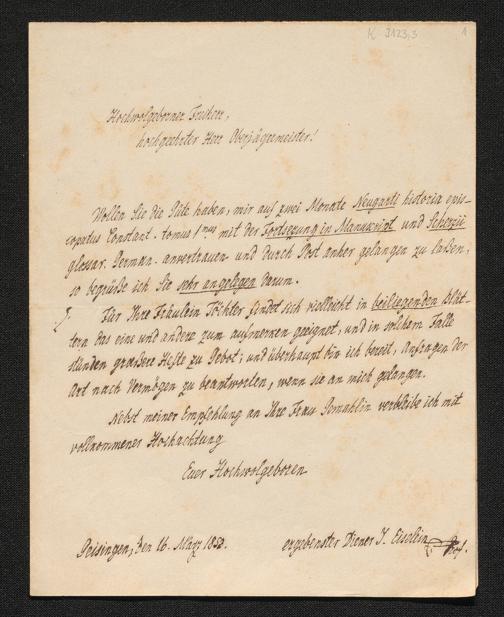 K 3123,3
1
Hochwolgeborner Freiherr,
hochgeehrter Herr Oberjägermeister!
Wollen Sie die Güte haben, mir auf zwei Monate Neugarti historia epis-
copatus Constant. tomus 1mus mit der Fortsezung in Manuscript und Scherzii
glossar. German. anvertrauen und durch Post anher gelangen zu laßen,
so begrüße ich Sie sehr angelegen darum.
Für Ihre Fräulein Töchter findet sich vielleicht in beiliegenden Blät-
tern das eine und andere zum aufnemen geeignet, und in solchem Falle
stünden graedere Hefte zu Gebot; und überhaupt bin ich bereit, anfragen der
Art nach Vermögen zu beantworten, wenn sie an mich gelangen.
Nebst meiner Empfehlung an Ihre Frau Gemahlin verbleibe ich mit
vollkommener Hochachtung
Euer Hochwolgeboren
Geisingen, den 16. März
ergebenster Diener J. Eiselein Prof.